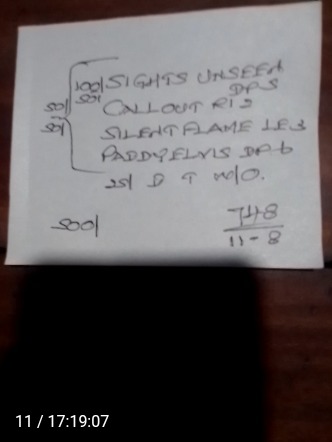 100/ SIGHTS UNSEEN DPS
50/ CALLOUT R12
50/ SILENT FLAME LE3
50/ PADDYELVIS DP6
25/ D T W/O.
500/
748
11-8
11 / 17:19:07